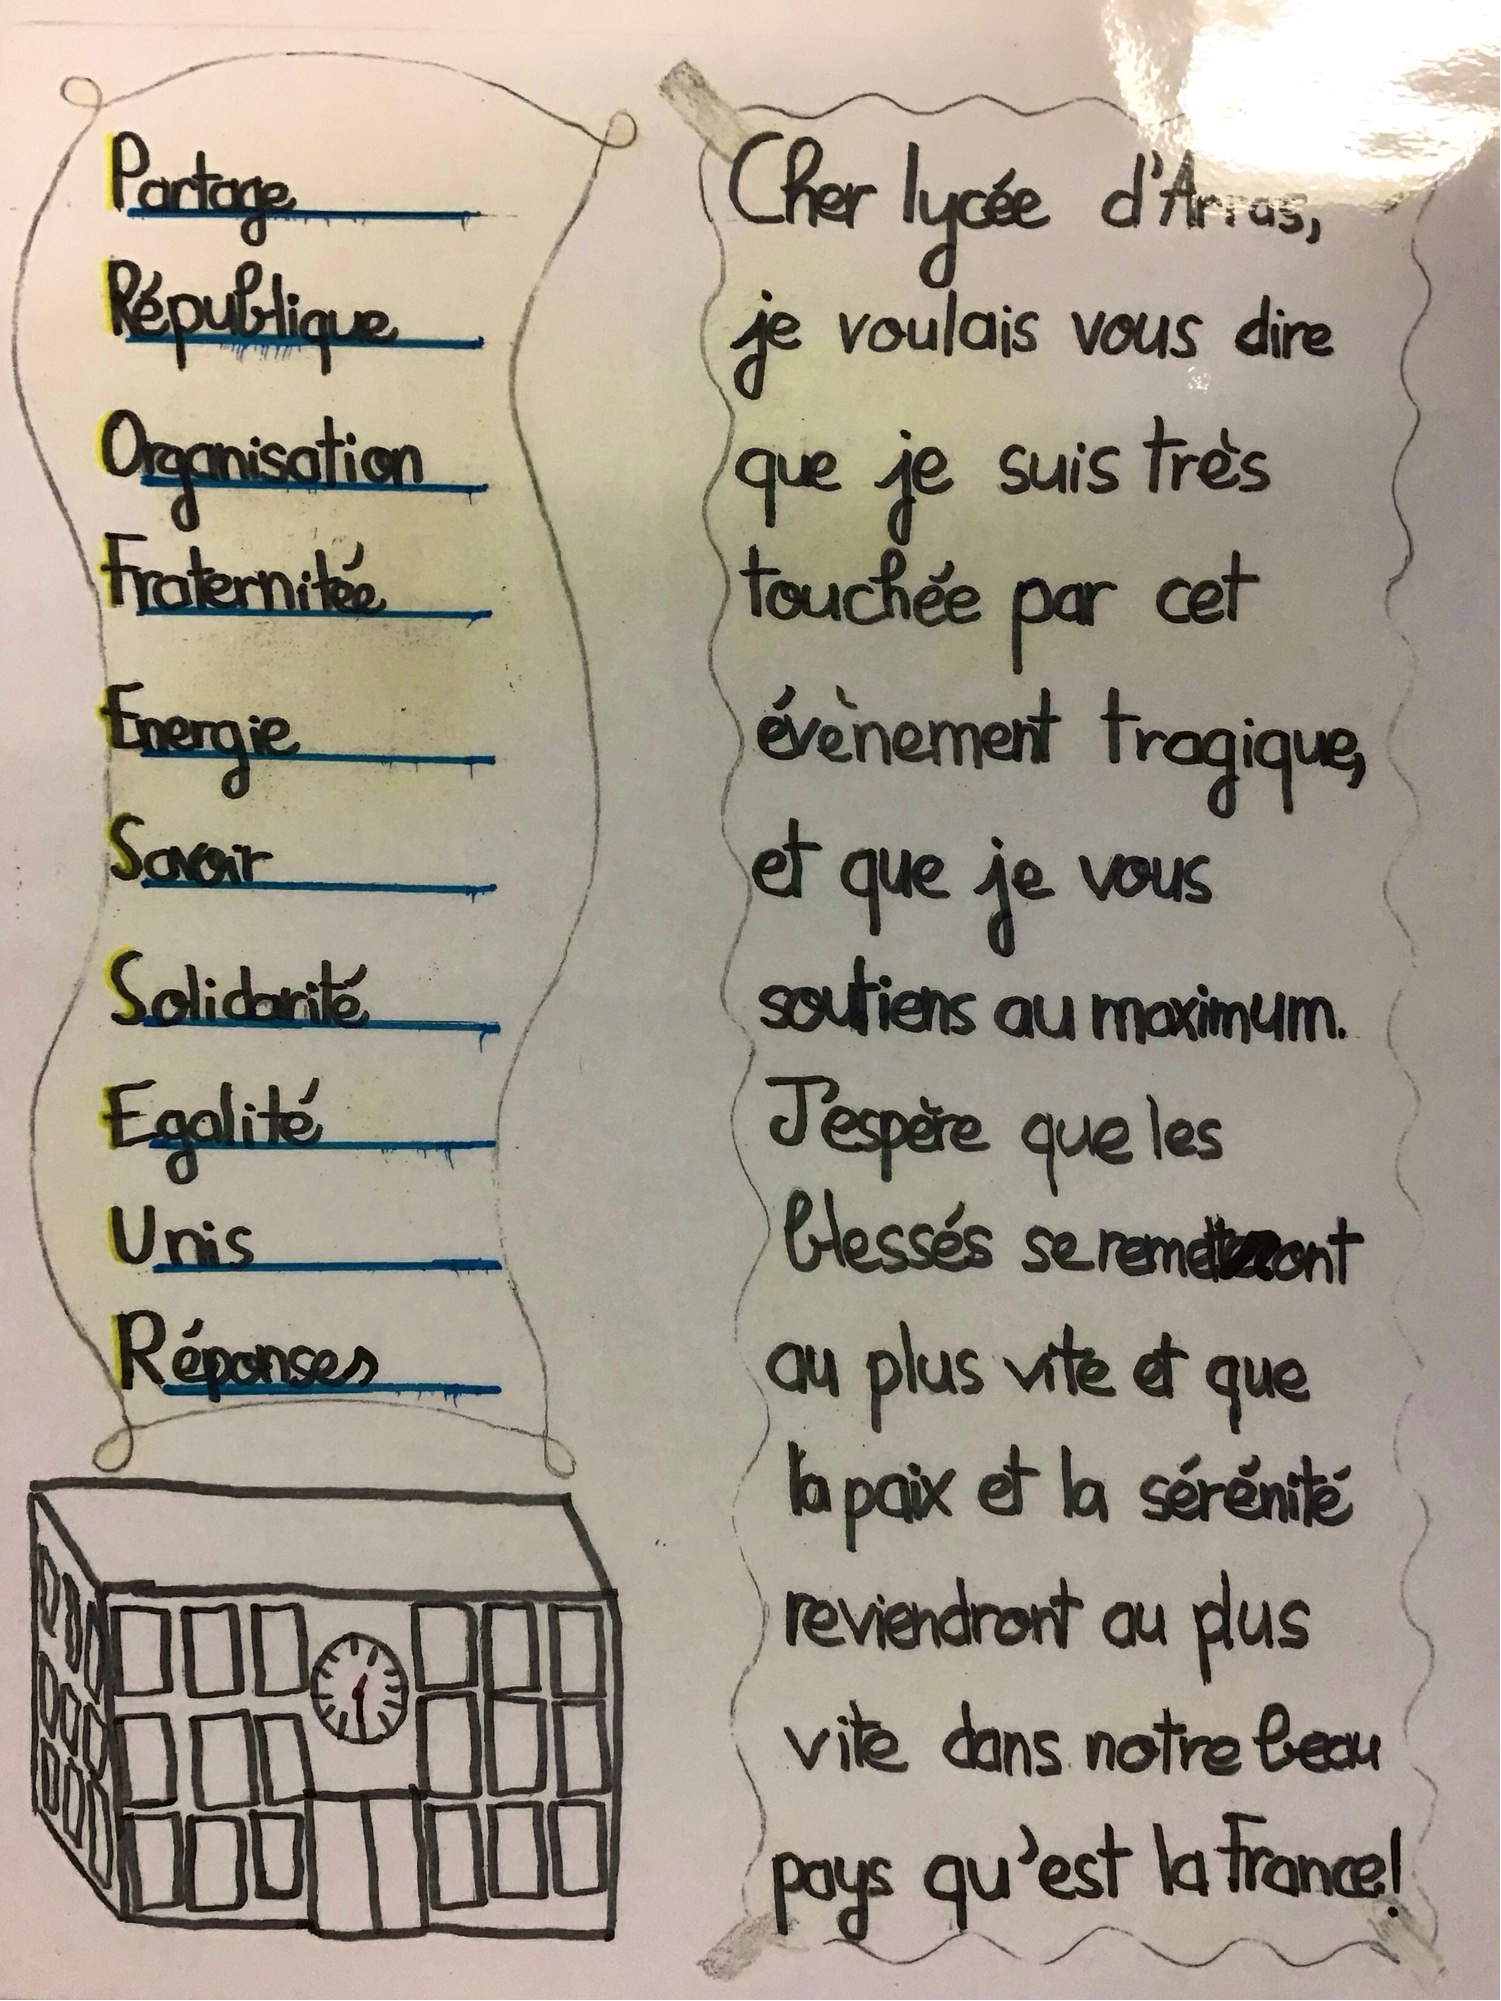 Partage
République
Organisation
Fraternitée
Energie
Savoir
Solidarité
Egalité
Unis
Réponses
Cher lycée d'Arras,
je voulais vous dire
que je suis très
touchée par cet
évènement tragique,
et que je vous
soutiens au maximum.
J'espère que les
blessés se remetteront
au plus vite et que
la paix et la sérénité
reviendront au plus
vite dans notre beau
pays qu'est la France!